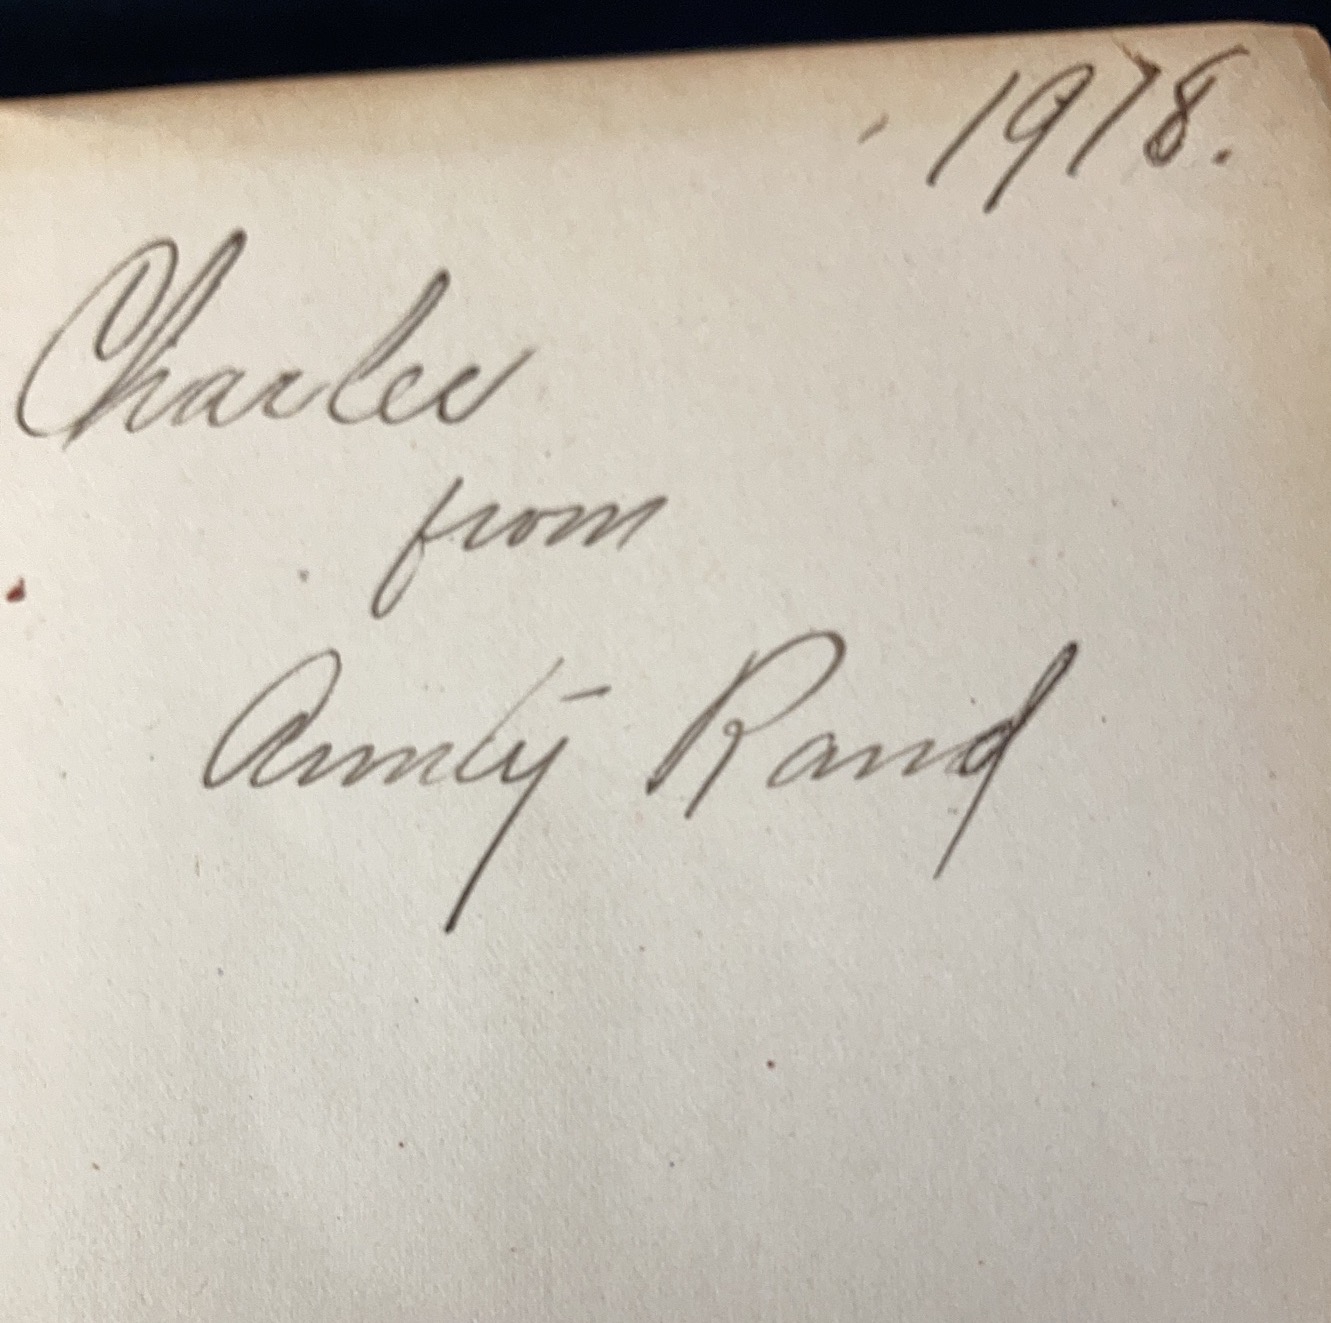 1918.
Charles
from
Aunty Rand